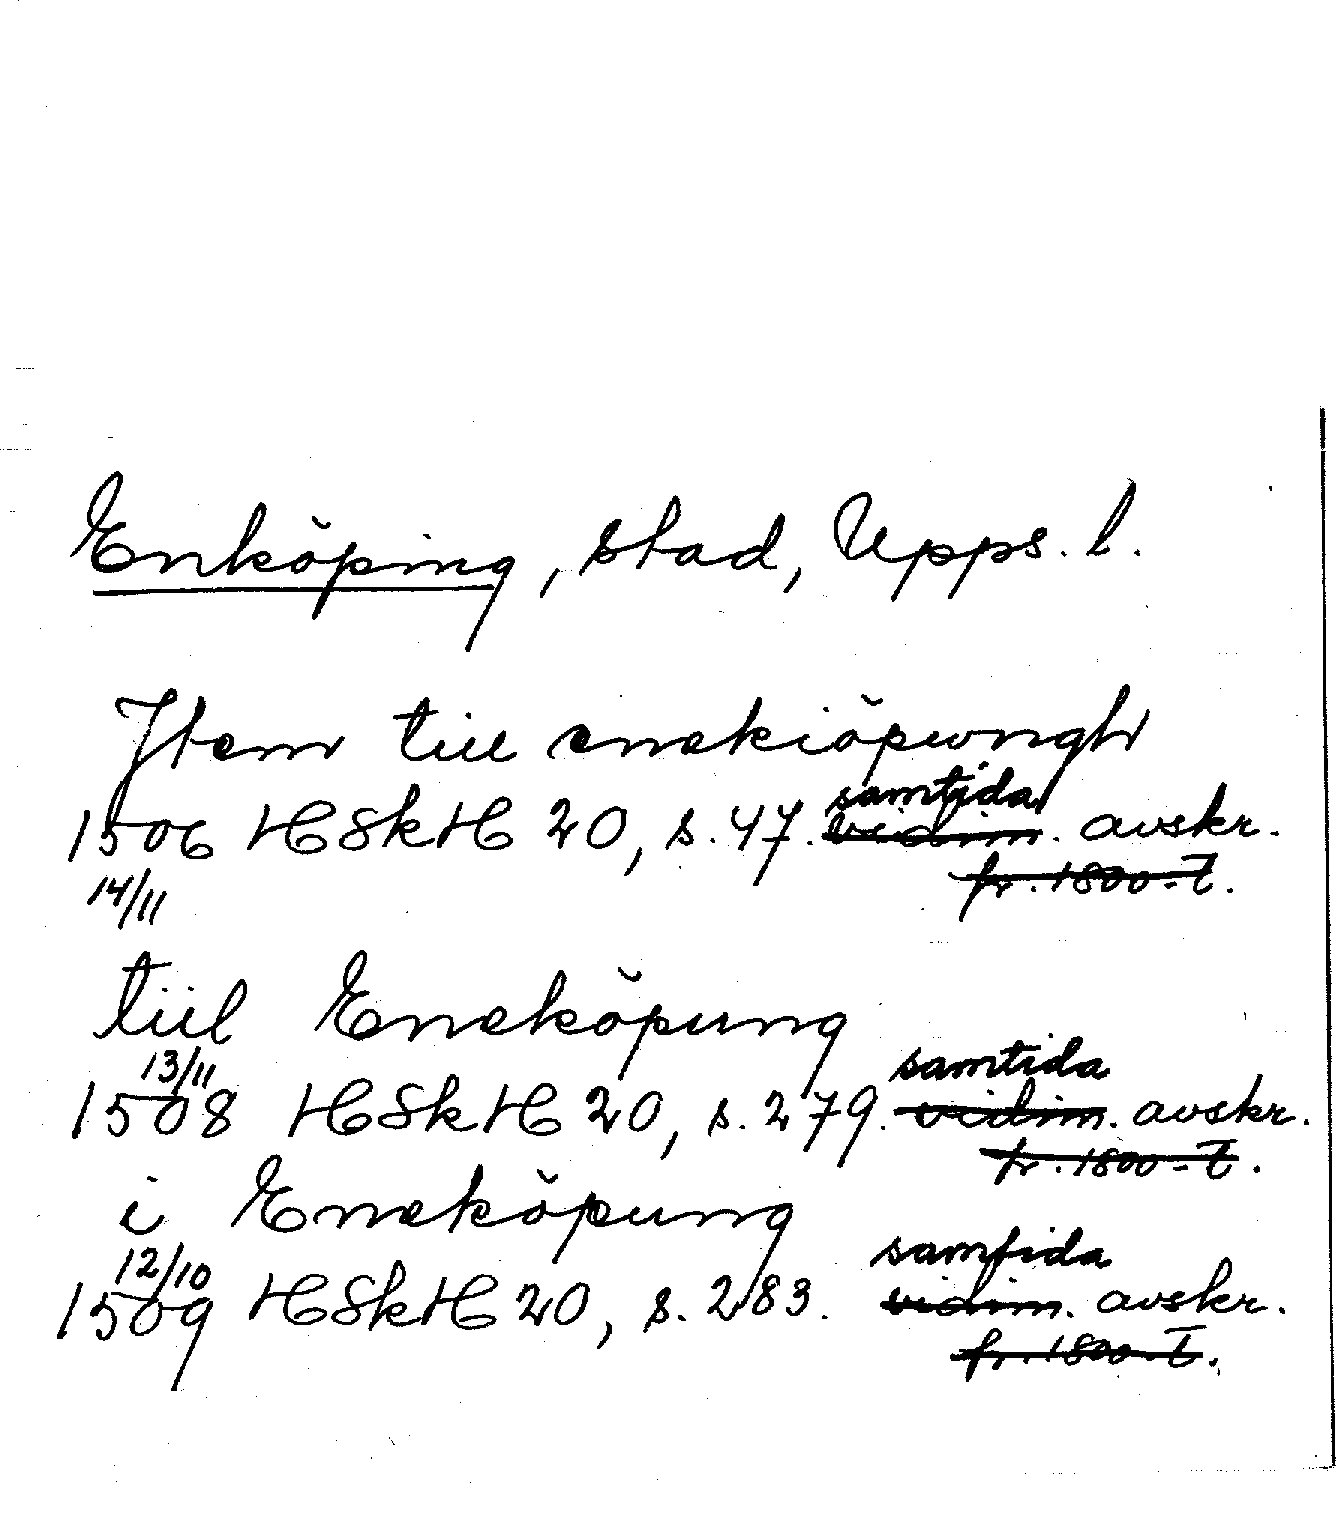 Enköping, stad, Upps. l.
Jtem till enekiöpungh
samtida
1506 HSkH 20, s. 47. vidim. avskr.
14/11 fr. 1800-t.
tiil Eneköpung
13/11 samtida
1508 HSkH 20, s. 279. vidim. avskr.
fr. 1800-t.
i Eneköpung
12/10 samtida
1509 HSkH 20, s. 283. vidim. avskr.
fr. 1800-t.